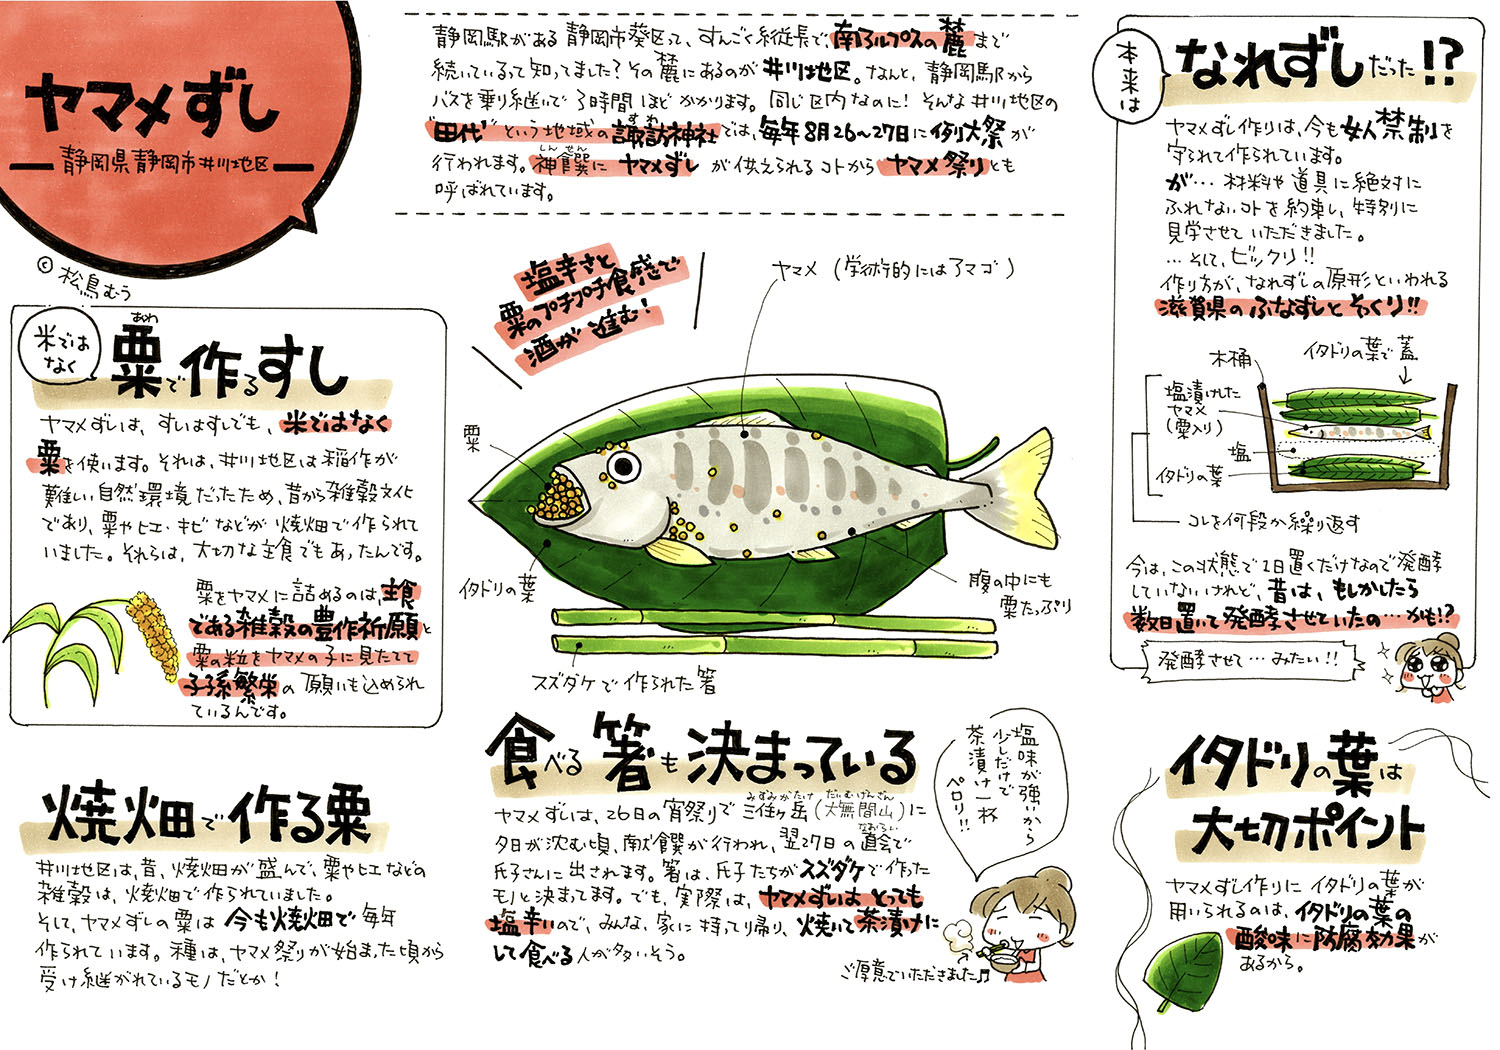 ヤマメずし
静岡県静岡市井川地区
© 松鳥むう
静岡駅がある静岡市葵区って、すんごく縦長で、南アルプスの麓まで
続いているって知ってました？その麓にあるのが井川地区。なんと、静岡駅から
バスを乗り継いで3時間ほどかかります。同じ区内なのに！そんな井川地区の
"田代"という地域の諏訪神社では、毎年8月26〜27日に例大祭が
すわ
行われます。神饌にヤマメずしが供えられるコトからヤマメ祭りとも
しんせん
呼ばれています。
本来は
なれずしだった!?
ヤマメずし作りは、今も女人禁制を
守られて作られています。
が…材料や道具に絶対に
ふれないコトを約束し、特別に
見学させていただきました。
…そして、ビックリ!!
作り方が、なれずしの原形といわれる
滋賀県のふなずしとそっくり!!
木桶
イタドリの葉で蓋
塩漬けした
ヤマメ
(粟入り)
塩
イタドリの葉
コレを何段か繰り返す
今は、この状態で1日置くだけなので発酵
していないけれど、昔は、もしかしたら
数日置いて発酵させていたの…かも!?
発酵させて…みたい!!
米では
なく
粟で作るすし
あわ
ヤマメずしは、すしはすしでも、米ではなく
粟を使います。それは、井川地区は稲作が
難しい自然環境だったため、昔から雑穀文化
であり、粟やヒエ・キビなどが焼畑で作られて
いました。それらは、大切な主食でもあったんです。
粟をヤマメに詰めるのは、主食
である雑穀の豊作祈願と
粟の粒をヤマメの子に見たてて
子孫繁栄の願いも込められ
ているんです。
塩辛さと
粟のプチプチ食感で
酒が進む！
ヤマメ (学術的にはアマゴ)
粟
イタドリの葉
腹の中にも
粟たっぷり
スズダケで作られた箸
焼畑で作る粟
井川地区は、昔、焼畑が盛んで、粟やヒエなどの
雑穀は、焼畑で作られていました。
そして、ヤマメずしの粟は今も焼畑で毎年
作られています。種は、ヤマメ祭りが始まった頃から
受け継がれているモノだとか！
食べる箸も決まっている
ヤマメずしは、26日の宵祭りで三住ヶ岳(大無間山)に
みずみがたけ
だいむげんざん
夕日が沈む頃、献饌が行われ、翌27日の直会で
なおらい
氏子さんに出されます。箸は、氏子たちがスズダケで作った
モノと決まってます。でも、実際は、ヤマメずしはとっても
塩辛いので、みんな、家に持って帰り、焼いて茶漬けに
して食べる人が多いそう。
塩味が強いから
少しだけで
茶漬け一杯
ペロリ!!
ご厚意でいただきました♬
イタドリの葉は
大切ポイント
ヤマメずし作りにイタドリの葉が
用いられるのは、イタドリの葉の
酸味に防腐効果が
あるから。